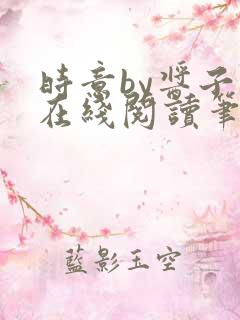 時意by醬子
在綫閱讀筆
藍影玉空